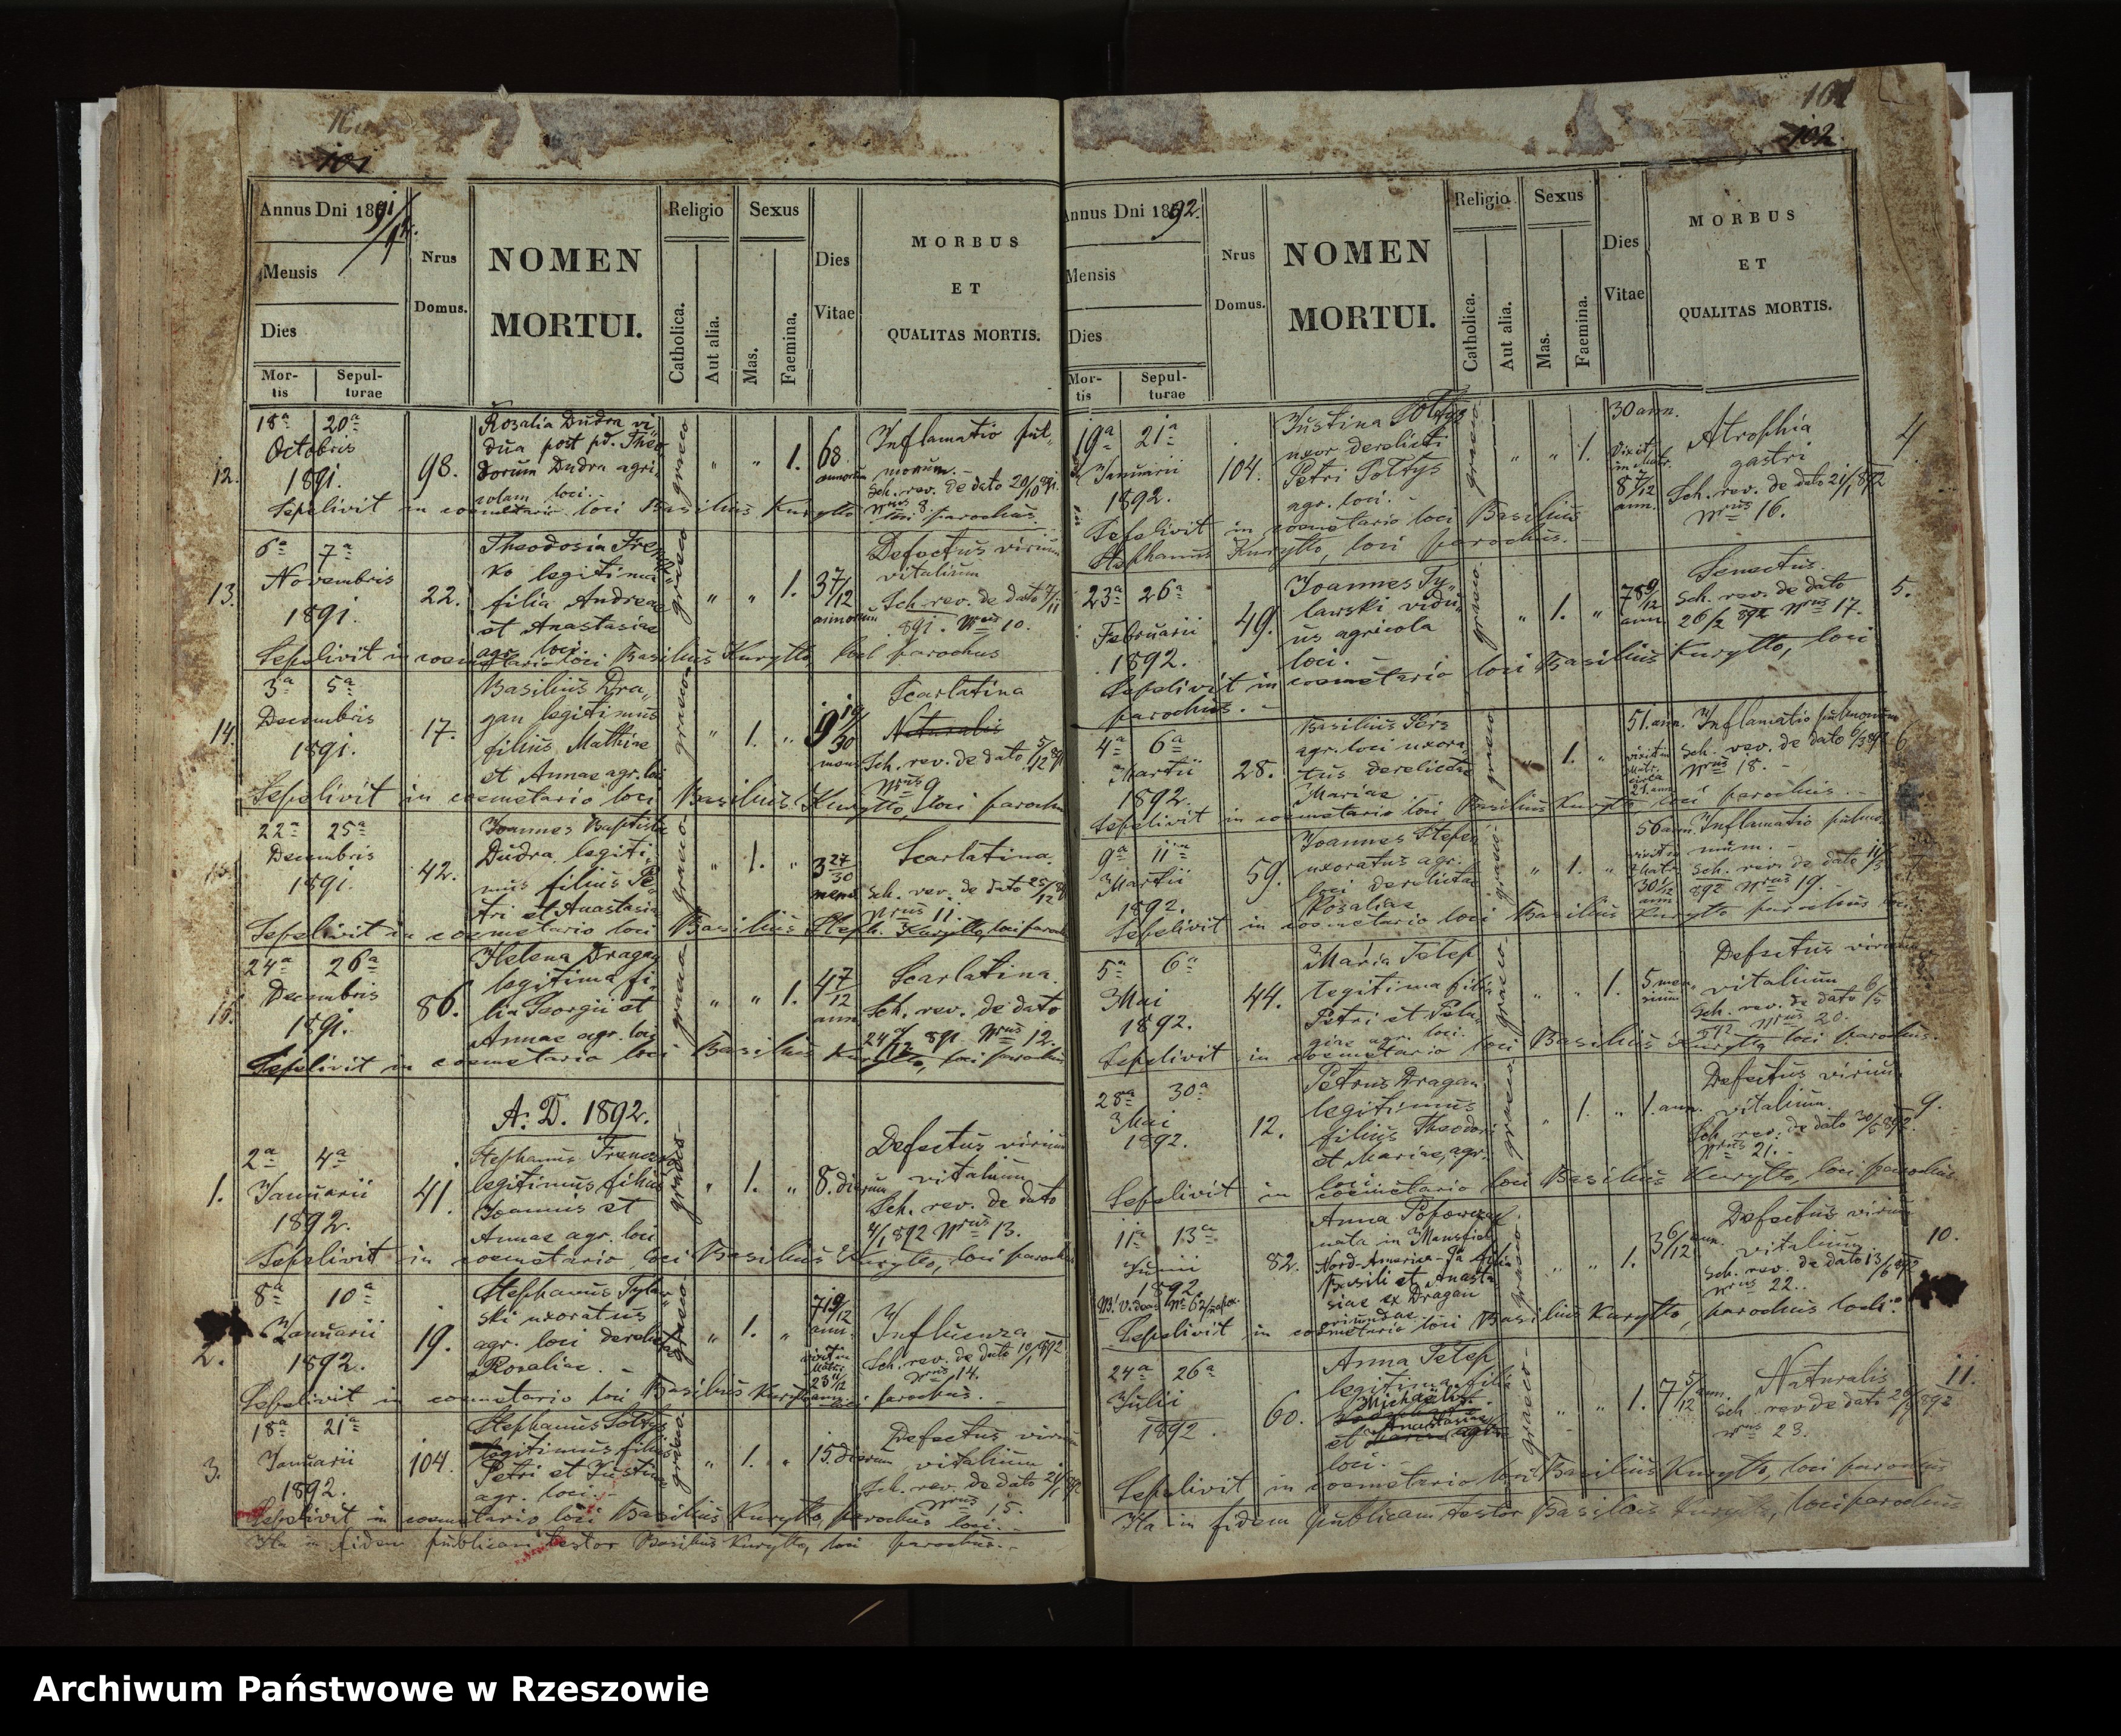 101
Annus Dni 1891/92.
Mensis
Dies
Mortis
Sepulturae
Nrus
Domus.
NOMEN
MORTUI.
Religio
Catholica.
Aut alia.
Sexus
Mas.
Faemina.
Dies
Vitae
MORBUS
ET
QUALITAS MORTIS.
12.
18a 20a
Octobris
1891.
98.
Rosalia Dudra vi-
dua post pd. Theo-
dorum Dudra agri-
colam loci.
graeco
" " 1.
68
annorum
Inflamatio pul-
monum.
Sch. rev. de dato 20/10 891.
Nrus 8.
Sepelivit in coemetario loci Basilius Kurytto loci parochus
13.
6a 7a
Novembris
1891.
22.
ko legitima
filia Andreae
et Anastasiae
agr. loci
graeco
" " 1.
3 7/12
annorum
Defectus virium
vitalium
Sch. rev. de dato 7/11
891. Nrus 10.
Sepelivit in coemetario loci Basilius Kurytto loci parochus
14.
3a 5a
Decembris
1891.
17.
Basilius Dra-
gan legitimus
filius Mathiae
et Annae agr. loci
graeco
" 1. "
9 19/30
mens
Scarlatina
Naturalis
Sch. rev. de dato 5/12 891
Nrus 9
Sepelivit in coemetario loci Basilius Kurytto, loci parochus
15.
22a 25a
Decembris
1891.
42.
Joannes Baptista
Dudra, legiti-
mus filius Pe-
tri et Anastasiae
graeco-
" 1. "
3 27/30
mens
Scarlatina.
Sch. rev. de dato 25/12
Nrus 11.
Sepelivit in coemetario loci Basilius Steph. Kurytto, loci paroch
16.
24a 26a
Decembris
1891.
86.
Helena Dragan
legitima fi-
lia Georgii et
Annae agr. loci
graeco
" " 1.
4 7/12
ann
Scarlatina.
Sch. rev. de dato
24/12 891. Nrus 12.
Sepelivit in coemetario loci Basilius Kurytto, loci parochus
A. D. 1892.
1.
2a 4a
Januarii
1892.
41.
legitimus filius
Joannis et
Annae agr. loci
graeco-
" 1. "
8. dierum
Defectus virium
vitalium
Sch. rev. de dato
4/1 892 Nrus 13.
Sepelivit in coemetario loci Basilius Kurytto, loci parochus
2.
8a 10a
Januarii
1892.
19.
Stephanus Tylaw-
ski uxoratus
agr. loci derelictae
Rosaliae. -
graeco
" 1. "
71 9/12
ann.
Influenza
Sch. rev. de dato 10/1 892
Nrus 14.
Sepelivit in coemetario loci Basilius Kurytto loci parochus.
3.
18a 21a
Januarii
1892.
104.
Stephanus Sołtys
legitimus filius
Petri et Justinae
agr. loci.
graeco
" 1. "
15. dierum
Defectus virium
vitalium
Sch. rev. de dato 21/1 892
Nrus 15.
Sepelivit in coemetario loci Basilius Kurytto, parochus loci.
Ita in fidem publicam testor Basilius Kurytto, loci parochus.
101
102
Annus Dni 1892.
Mensis
Dies
Mortis
Sepulturae
Nrus
Domus.
NOMEN
MORTUI.
Religio
Catholica.
Aut alia.
Sexus
Mas.
Faemina.
Dies
Vitae
MORBUS
ET
QUALITAS MORTIS.
4
19a 21a
Januarii
1892.
104.
Justina Sołtys
uxor derelicti
Petri Sołtys
agr. loci. -
graeco
" " 1.
30 ann.
Vixit
in Matr.
8 7/12
ann.
Atrophia
gastri
Sch. rev. de dato 21/1 892
Nrus 16.
Sepelivit in coemetario loci Basilius
Stephanus Kurytto, loci parochus. -
5.
23a 26a
Februarii
1892.
49.
Joannes Ty-
lawski vidu-
us agricola
loci. -
graeco
" 1. "
78 9/12
ann
Senectus.
Sch. rev. de dato
26/2 892 Nrus 17.
Sepelivit in coemetario loci Basilius Kurytto, loci
parochus. -
6
4a 6a
Martii
1892.
28.
agr. loci uxora-
tus derelictae
Mariae
graeco
" 1. "
51. ann.
vixit in
Matr.
circa
21. ann
Inflamatio pulmonum
Sch. rev. de dato 6/3 892
Nrus 18. -
Sepelivit in coemetario loci Basilius Kurytto loci parochus. -
9a 11a
Martii
1892.
59.
uxoratus agr.
loci derelictae
Rosaliae
graeco
" 1. "
56 ann.
vixit in
Matr.
30 1/12
ann
Inflamatio pulmo-
num. -
Sch. rev. de dato 11/3
892 Nrus 19. -
Sepelivit in coemetario loci Basilius Kurytto parochus loci
5a 6a
Mai
1892.
44.
Maria Telep
legitima filia
Petri et Pela-
giae agr. loci.
graeco-
" " 1.
5 men-
sium
Defectus virium
vitalium
Sch. rev. de dato 6/5
892 Nrus 20.
Sepelivit in coemetario loci Basilius Kurytto loci parochus.
9.
28a 30a
Mai
1892.
12.
Petrus Dragan
legitimus
filius Theodori
et Mariae, agr.
loci
graeco
" 1. "
1. ann.
Defectus virium
vitalium.
Sch. rev. de dato 30/5 892.
Nrus 21. -
Sepelivit in coemetario loci Basilius Kurytto, loci parochus
10.
11a 13a
Junii
1892.
82.
nata in Mansfield
Nord-America-Pa filia
Basili et Anasta-
siae ex Dragan
oriundae
graeco
" " 1.
3 6/12 ann.
Defectus virium
vitalium
Sch. rev. de dato 13/6 892
Nrus 22.
Sepelivit in coemetario loci Basilius Kurytto, parochus loci.
11.
24a 26a
Julii
1892.
60.
Anna Telep
legitima filia
Michaelis
et Anastasiae agr.
loci. -
graeco-
" " 1.
7 5/12 ann.
Naturalis
Sch. rev de dato 26/7 892
Nrus 23.
Sepelivit in coemetario loci Basilius Kurytto, loci parochus
Ita in fidem publicam testor Basilius Kurytto, loci parochus
Archiwum Państwowe w Rzeszowie